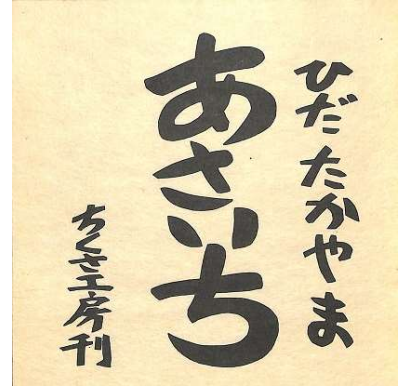 ひだ たかやま
あさいち
ちくさ工房刊